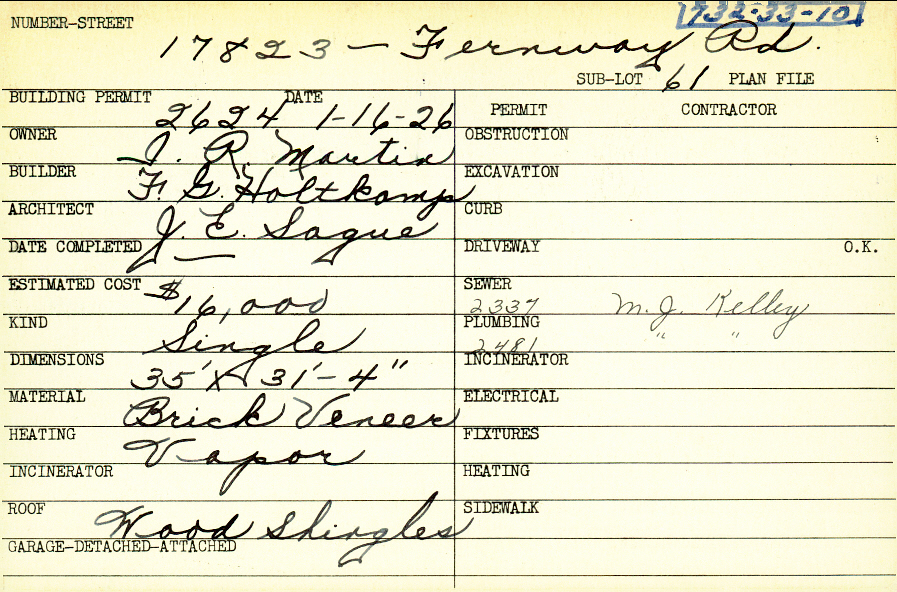 732-33-10
NUMBER-STREET 17823 - Fernway Rd.
SUB-LOT 61 PLAN FILE
BUILDING PERMIT 2624 DATE 1-16-26
OWNER J. R. Martin
BUILDER F. G. Holtkamp
ARCHITECT J. E. Sague
DATE COMPLETED —
ESTIMATED COST $16,000
KIND Single
DIMENSIONS 35' X 31'-4"
MATERIAL Brick Veneer
HEATING Vapor
INCINERATOR
ROOF Wood Shingles
GARAGE-DETACHED-ATTACHED
PERMIT CONTRACTOR
OBSTRUCTION
EXCAVATION
CURB
DRIVEWAY O.K.
SEWER 2337 M. J. Kelley
PLUMBING 2481 " "
INCINERATOR
ELECTRICAL
FIXTURES
HEATING
SIDEWALK